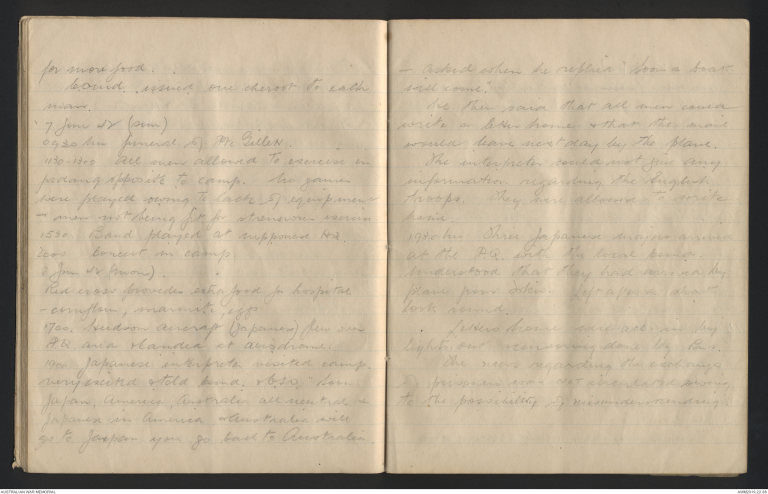 for more food.
Comd. issued one cheroot to each
man.
7 Jun 42 (Sun)
0930 hrs funeral of Pte Gillett.
1130-1300 All men allowed to exercise in
padang opposite to camp. No games
were played owing to lack of equipment
- men not being fit for strenuous exercise
1530 Band played at supposed HQ.
2000 Concert in camp
8 Jun 42 (Mon).
Red cross provides extra food for hospital
- cornflour, marmite, eggs
1700. Hudson aircraft (Japanese) flew over
P.Q. area & landed at aerodrome.
1900 Japanese interpreter visited camp.
very excited & told Comd. & "Soon
Japan, America, Australia all neutral &
Japanese in America & Australia will
go to Japan you go back to Australia
- Asked when he replied "Soon a boat
will come."
He then said that all men could
write a letter home & that the mail
would leave next day by the plane.
The interpreter could not give any
information regarding the English
troops. They are allowed to write
1930 hrs Three Japanese majors arrived
at the P.Q. with the local
Understood that they had arrived by
plane from & had a short
look round.
Letters home were all in by
lights out censoring done by
The news regarding the exchange
of prisoners was not circulated owing
to the possibility of misunderstanding.
AUSTRALIAN WAR MEMORIAL